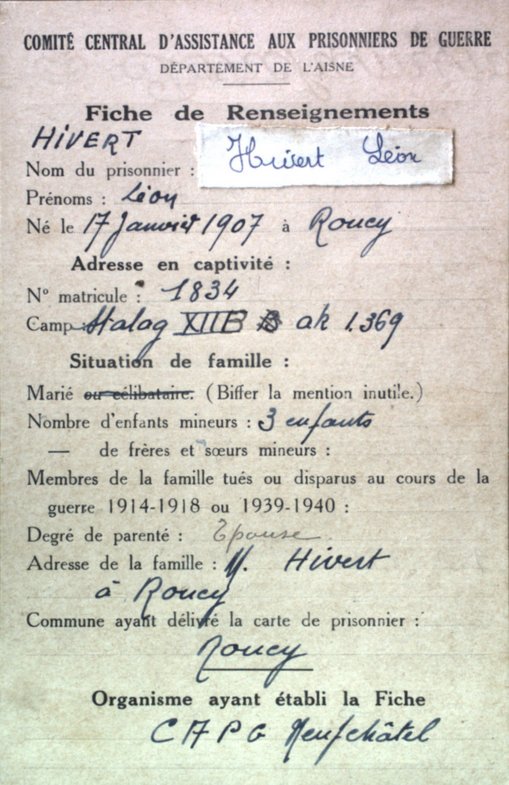 COMITÉ CENTRAL D'ASSISTANCE AUX PRISONNIERS DE GUERRE
DÉPARTEMENT DE L'AISNE
Fiche de Renseignements
HIVERT
Nom du prisonnier : Hivert Léon
Prénoms : Léon
Né le 17 Janvier 1907 à Roucy
Adresse en captivité :
N° matricule : 1834
Camp : Stalag XII B ak 1.369
Situation de famille :
Marié ou célibataire. (Biffer la mention inutile.)
Nombre d'enfants mineurs : 3 enfants
— de frères et sœurs mineurs :
Membres de la famille tués ou disparus au cours de la
guerre 1914-1918 ou 1939-1940 :
Degré de parenté : Epouse
Adresse de la famille : M. Hivert
à Roucy
Commune ayant délivré la carte de prisonnier :
Roucy
Organisme ayant établi la Fiche
CAPG Neufchâtel